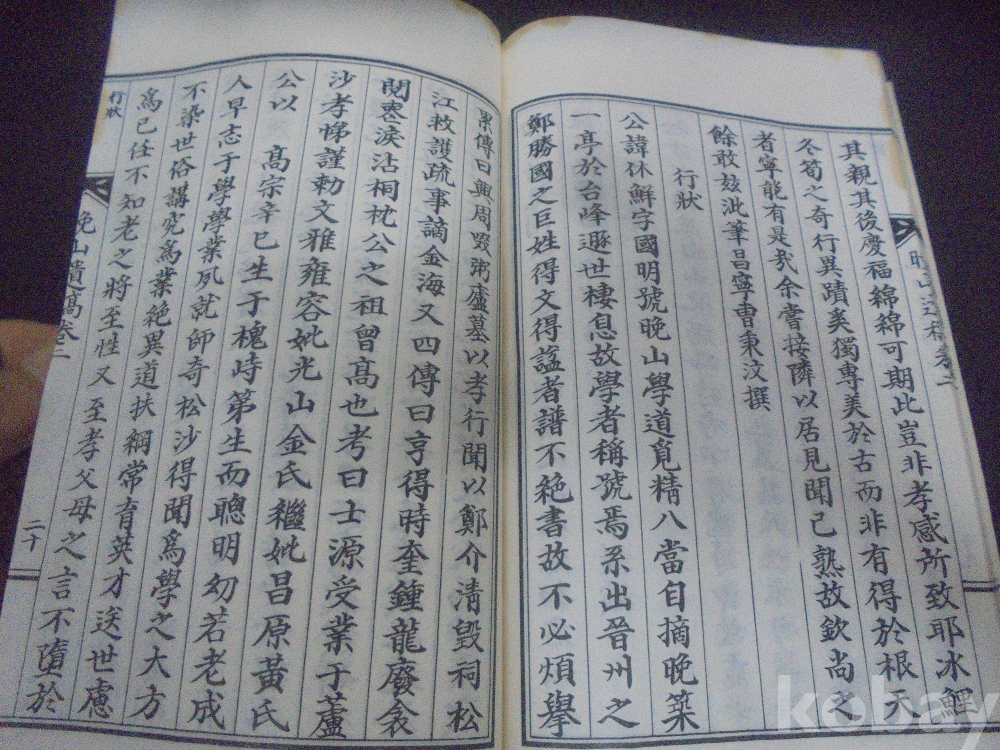 其親其後慶福綿綿可期此豈非孝感所致耶冰鯉
冬筍之奇行異蹟奚獨專美於古而非有得於根天
者寧能有是哉余嘗接隣以居見聞已熟故欽尚之
餘敢玆泚筆昌寧曺秉汶撰
行狀
公諱休鮮字國明號晚山學道覓精八當自摘晚築
一亭於台峰遯世棲息故學者稱號焉系出晉州之
鄭勝國之巨姓得文得諡者譜不絶書故不必煩擧
傳曰興周啜粥廬墓以孝行聞以鄭介淸毁祠松
江救護疏事謫金海又四傳曰亨得時奎鍾龍廢飡
閱悉淚沾桐枕公之祖曾高也考曰士源受業于蘆
沙孝悌謹勅文雅雍容妣光山金氏繼妣昌原黃氏
公以 高宗辛巳生于槐峙第生而聰明幼若老成
人早志于學學業夙就師奇松沙得聞爲學之大方
不染世俗講究爲業絶異道扶綱常育英才送世慮
爲已任不知老之將至性又至孝父母之言不墮於
行狀
晚山遺高卷二
二十
kobay